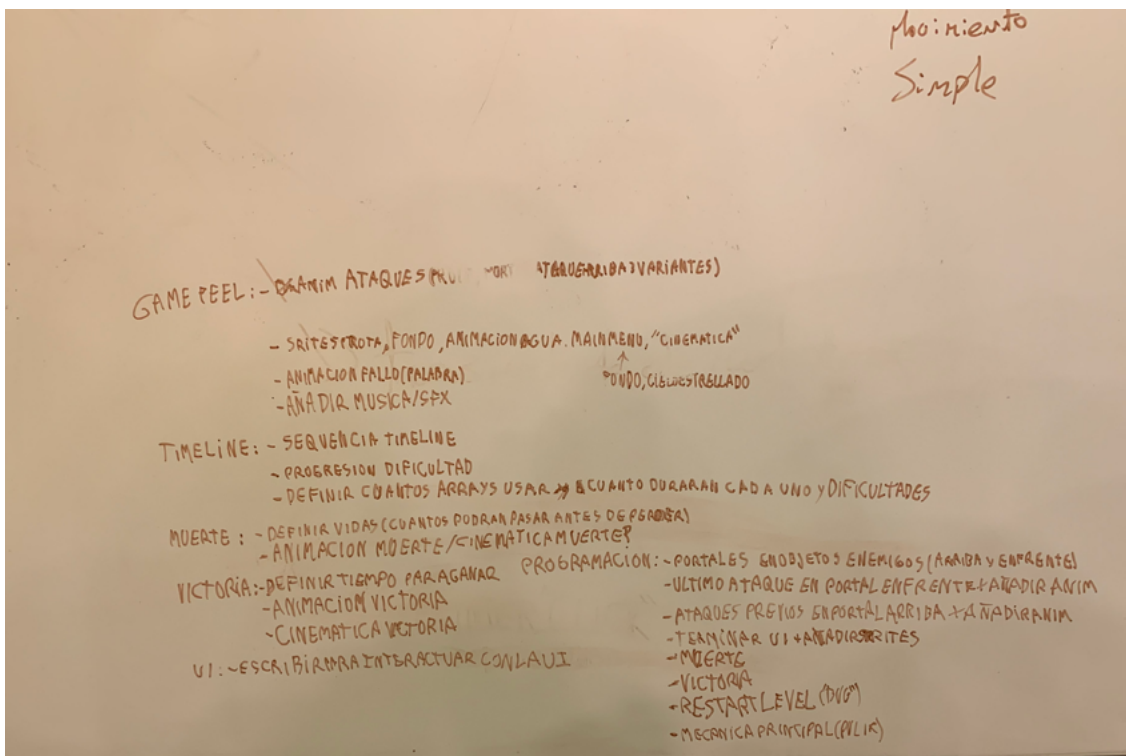 Movimiento
Simple
GAME FEEL: - ANIM ATAQUES ( VARIANTES)
- SRITES FONDO, ANIMACION AGUA. MAIN MENU, "CINEMATICA"
- ANIMACION FALLO (PALABRA)
FONDO, CIELO ESTRELLADO
- AÑADIR MUSICA/SFX
TIMELINE: - SEQUENCIA TIMELINE
- PROGRESION DIFICULTAD
- DEFINIR CUANTOS ARRAYS USAR CUANTO DURARAN CADA UNO y DIFICULTADES
MUERTE: - DEFINIR VIDAS (CUANTOS PODRAN PASAR ANTES DE PERDER)
- ANIMACION MUERTE/CINEMATICA MUERTE?
VICTORIA: - DEFINIR TIEMPO PARA GANAR
- ANIMACION VICTORIA
- CINEMATICA VICTORIA
UI: - ESCRIBIR PARA INTERACTUAR CON LA UI
PROGRAMACION: - PORTALES EN OBJETOS ENEMIGOS (ARRIBA y ENFRENTE)
- ULTIMO ATAQUE EN PORTAL ENFRENTE + AÑADIR ANIM
- ATAQUES PREVIOS EN PORTAL ARRIBA + AÑADIR ANIM
- TERMINAR UI + AÑADIR SRITES
- MUERTE
- VICTORIA
- RESTART LEVEL ("BUG")
- MECANICA PRINCIPAL (PULIR)